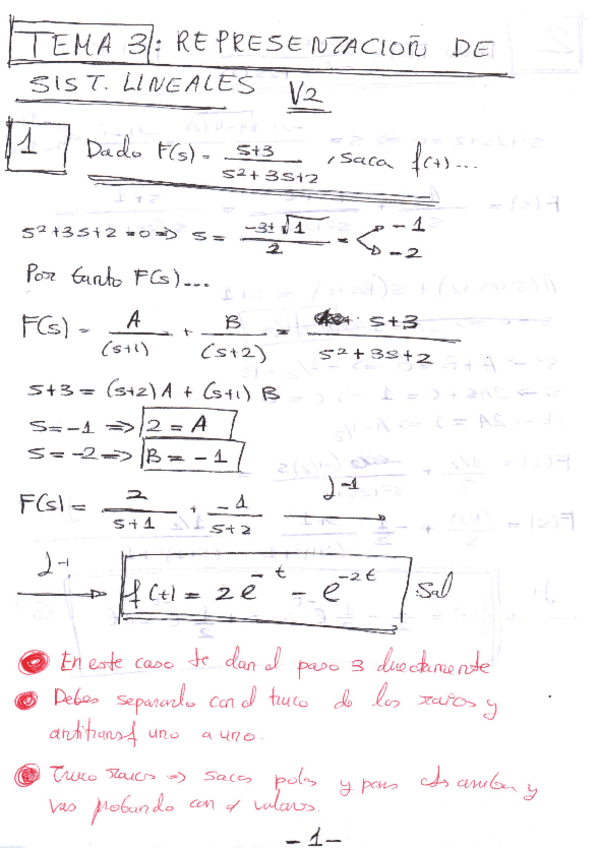 TEMA 3: REPRESENTACIOÑ DE
SIST. LINEALES V2
1 Dado F(s) = (s+3)/(s²+3s+2), saca f(t)...
s²+3s+2=0 => s = (-3±√1)/2 = < -1
-2
Por tanto F(s)...
F(s) = A/(s+1) + B/(s+2) = s+3/(s²+3s+2)
s+3 = (s+2)A + (s+1)B
s=-1 => 2 = A
s=-2 => B = -1
F(s) = 2/(s+1) + -1/(s+2) L⁻¹ →
L⁻¹ → f(t) = 2e^-t - e^-2t Sol
En este caso te dan el paso 3 directamente
Debes separarlo con el truco de los raros y
antitransf uno a uno.
Truco raros => sacas polos y pones arriba y
vas probando con valores.
-1-